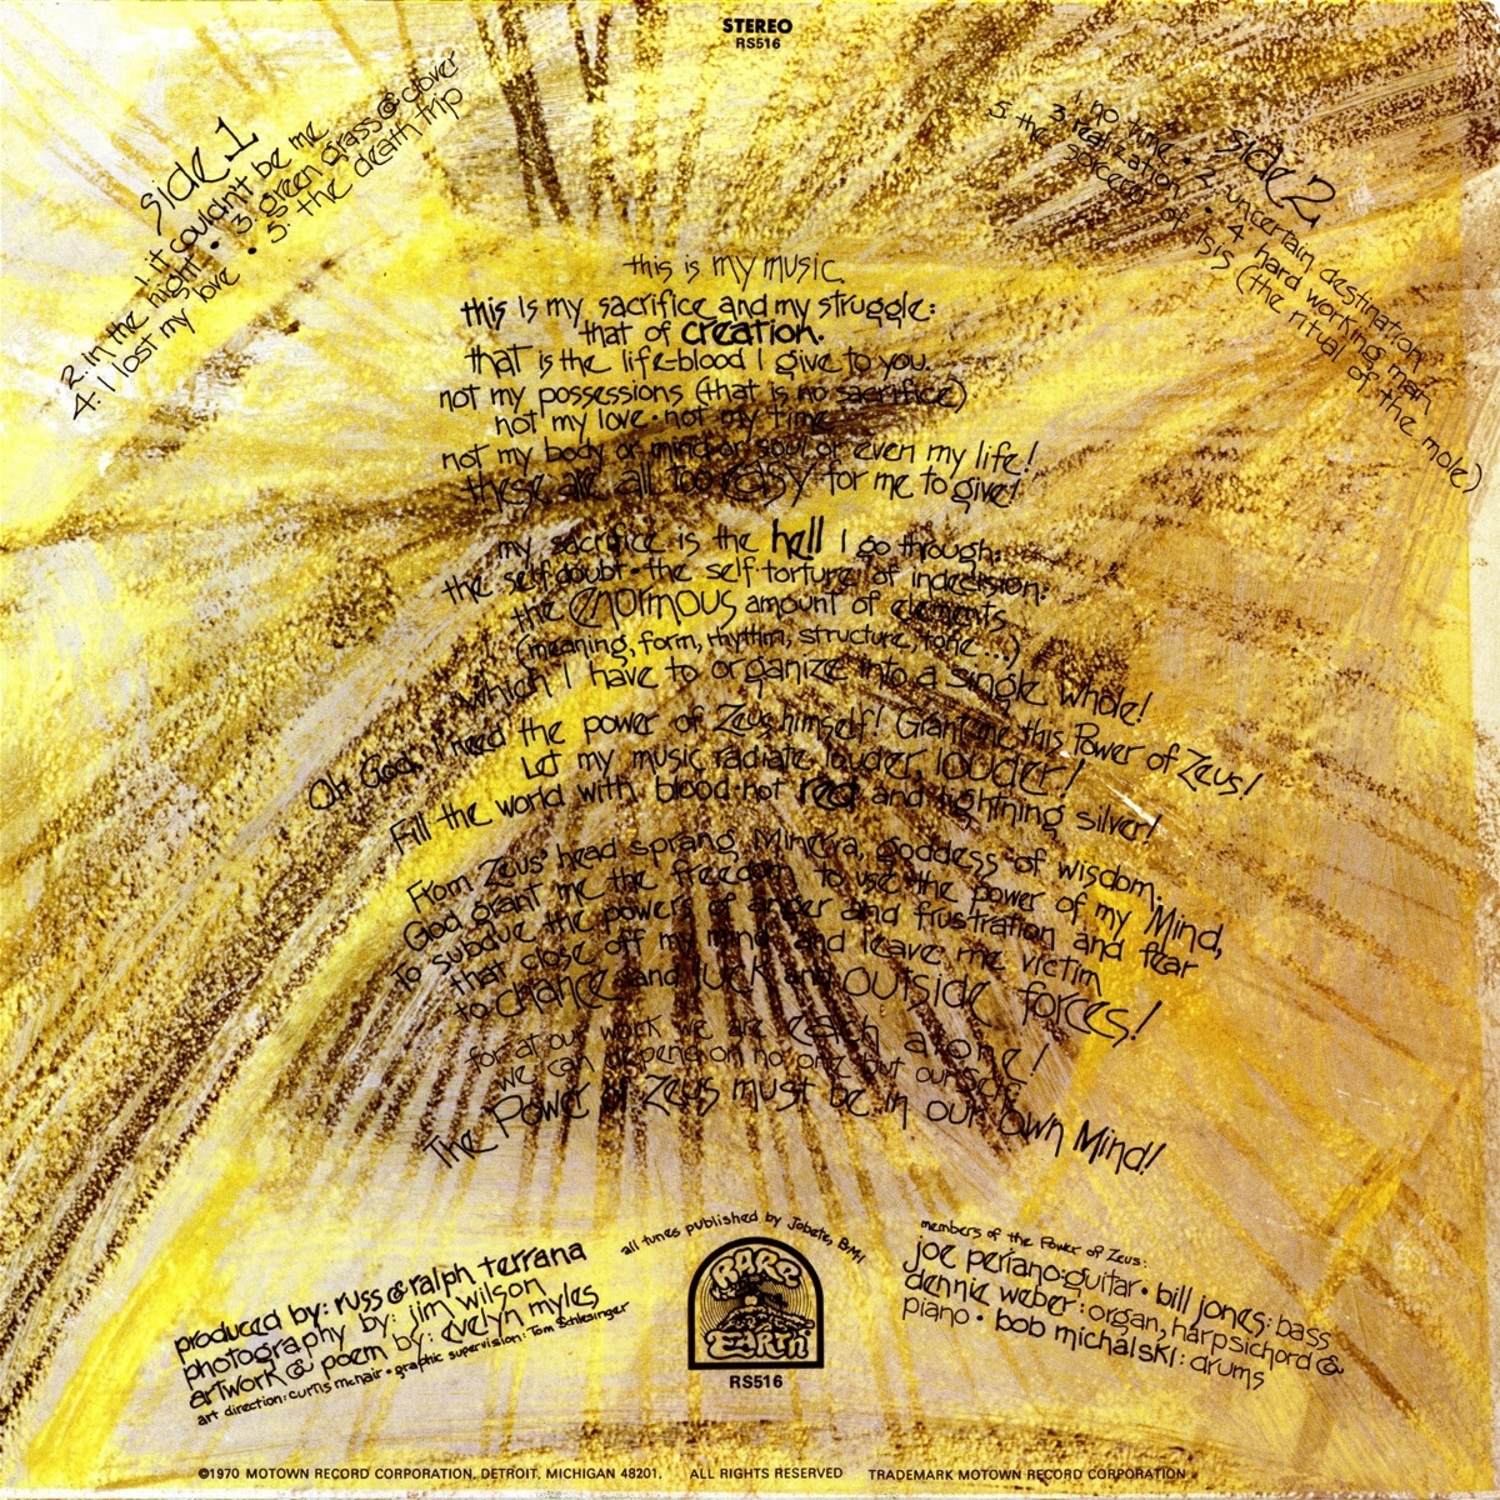 STEREO
RS516
side 1
1. it couldn't be me
2. in the night • 3. green grass & clover
4. I lost my love • 5. the death trip
side 2
1 no time • 2 uncertain destination
3. realization • 4 hard working man
5. the sorcerer of isis (the ritual of the mole)
this is my music.
this is my sacrifice and my struggle:
that of creation.
that is the life-blood I give to you.
not my possessions (that is no sacrifice)
not my love • not my time
not my body or mind or soul or even my life!
these are all too easy for me to give!
my sacrifice is the hell I go through:
the self-doubt • the self-torture of indecision:
the enormous amount of elements
(meaning, form, rhythm, structure, tone...)
which I have to organize into a single whole!
Oh God, I need the power of Zeus himself! Grant me this Power of Zeus!
Let my music radiate louder, louder!
Fill the world with blood-hot red and lightning silver!
From Zeus' head sprang Minerva, goddess of wisdom.
God grant me the freedom to use the power of my Mind,
to subdue the powers of anger and frustration and fear
that close off my mind and leave me victim
to chance and luck and outside forces!
for at our work we are each alone!
we can depend on no one but our self,
The Power of Zeus must be in our own Mind!
produced by: russ & ralph terrana
photography by: jim wilson
artwork & poem by: evelyn myles
art direction: curtis mcnair • graphic supervision: Tom Schlesinger
all tunes published by Jobete, BMI
RARE
EARTH
RS516
members of the Power of Zeus:
joe periano: guitar • bill jones: bass
dennie weber: organ, harpsichord &
piano • bob michalski: drums
©1970 MOTOWN RECORD CORPORATION, DETROIT, MICHIGAN 48201, ALL RIGHTS RESERVED TRADEMARK MOTOWN RECORD CORPORATION